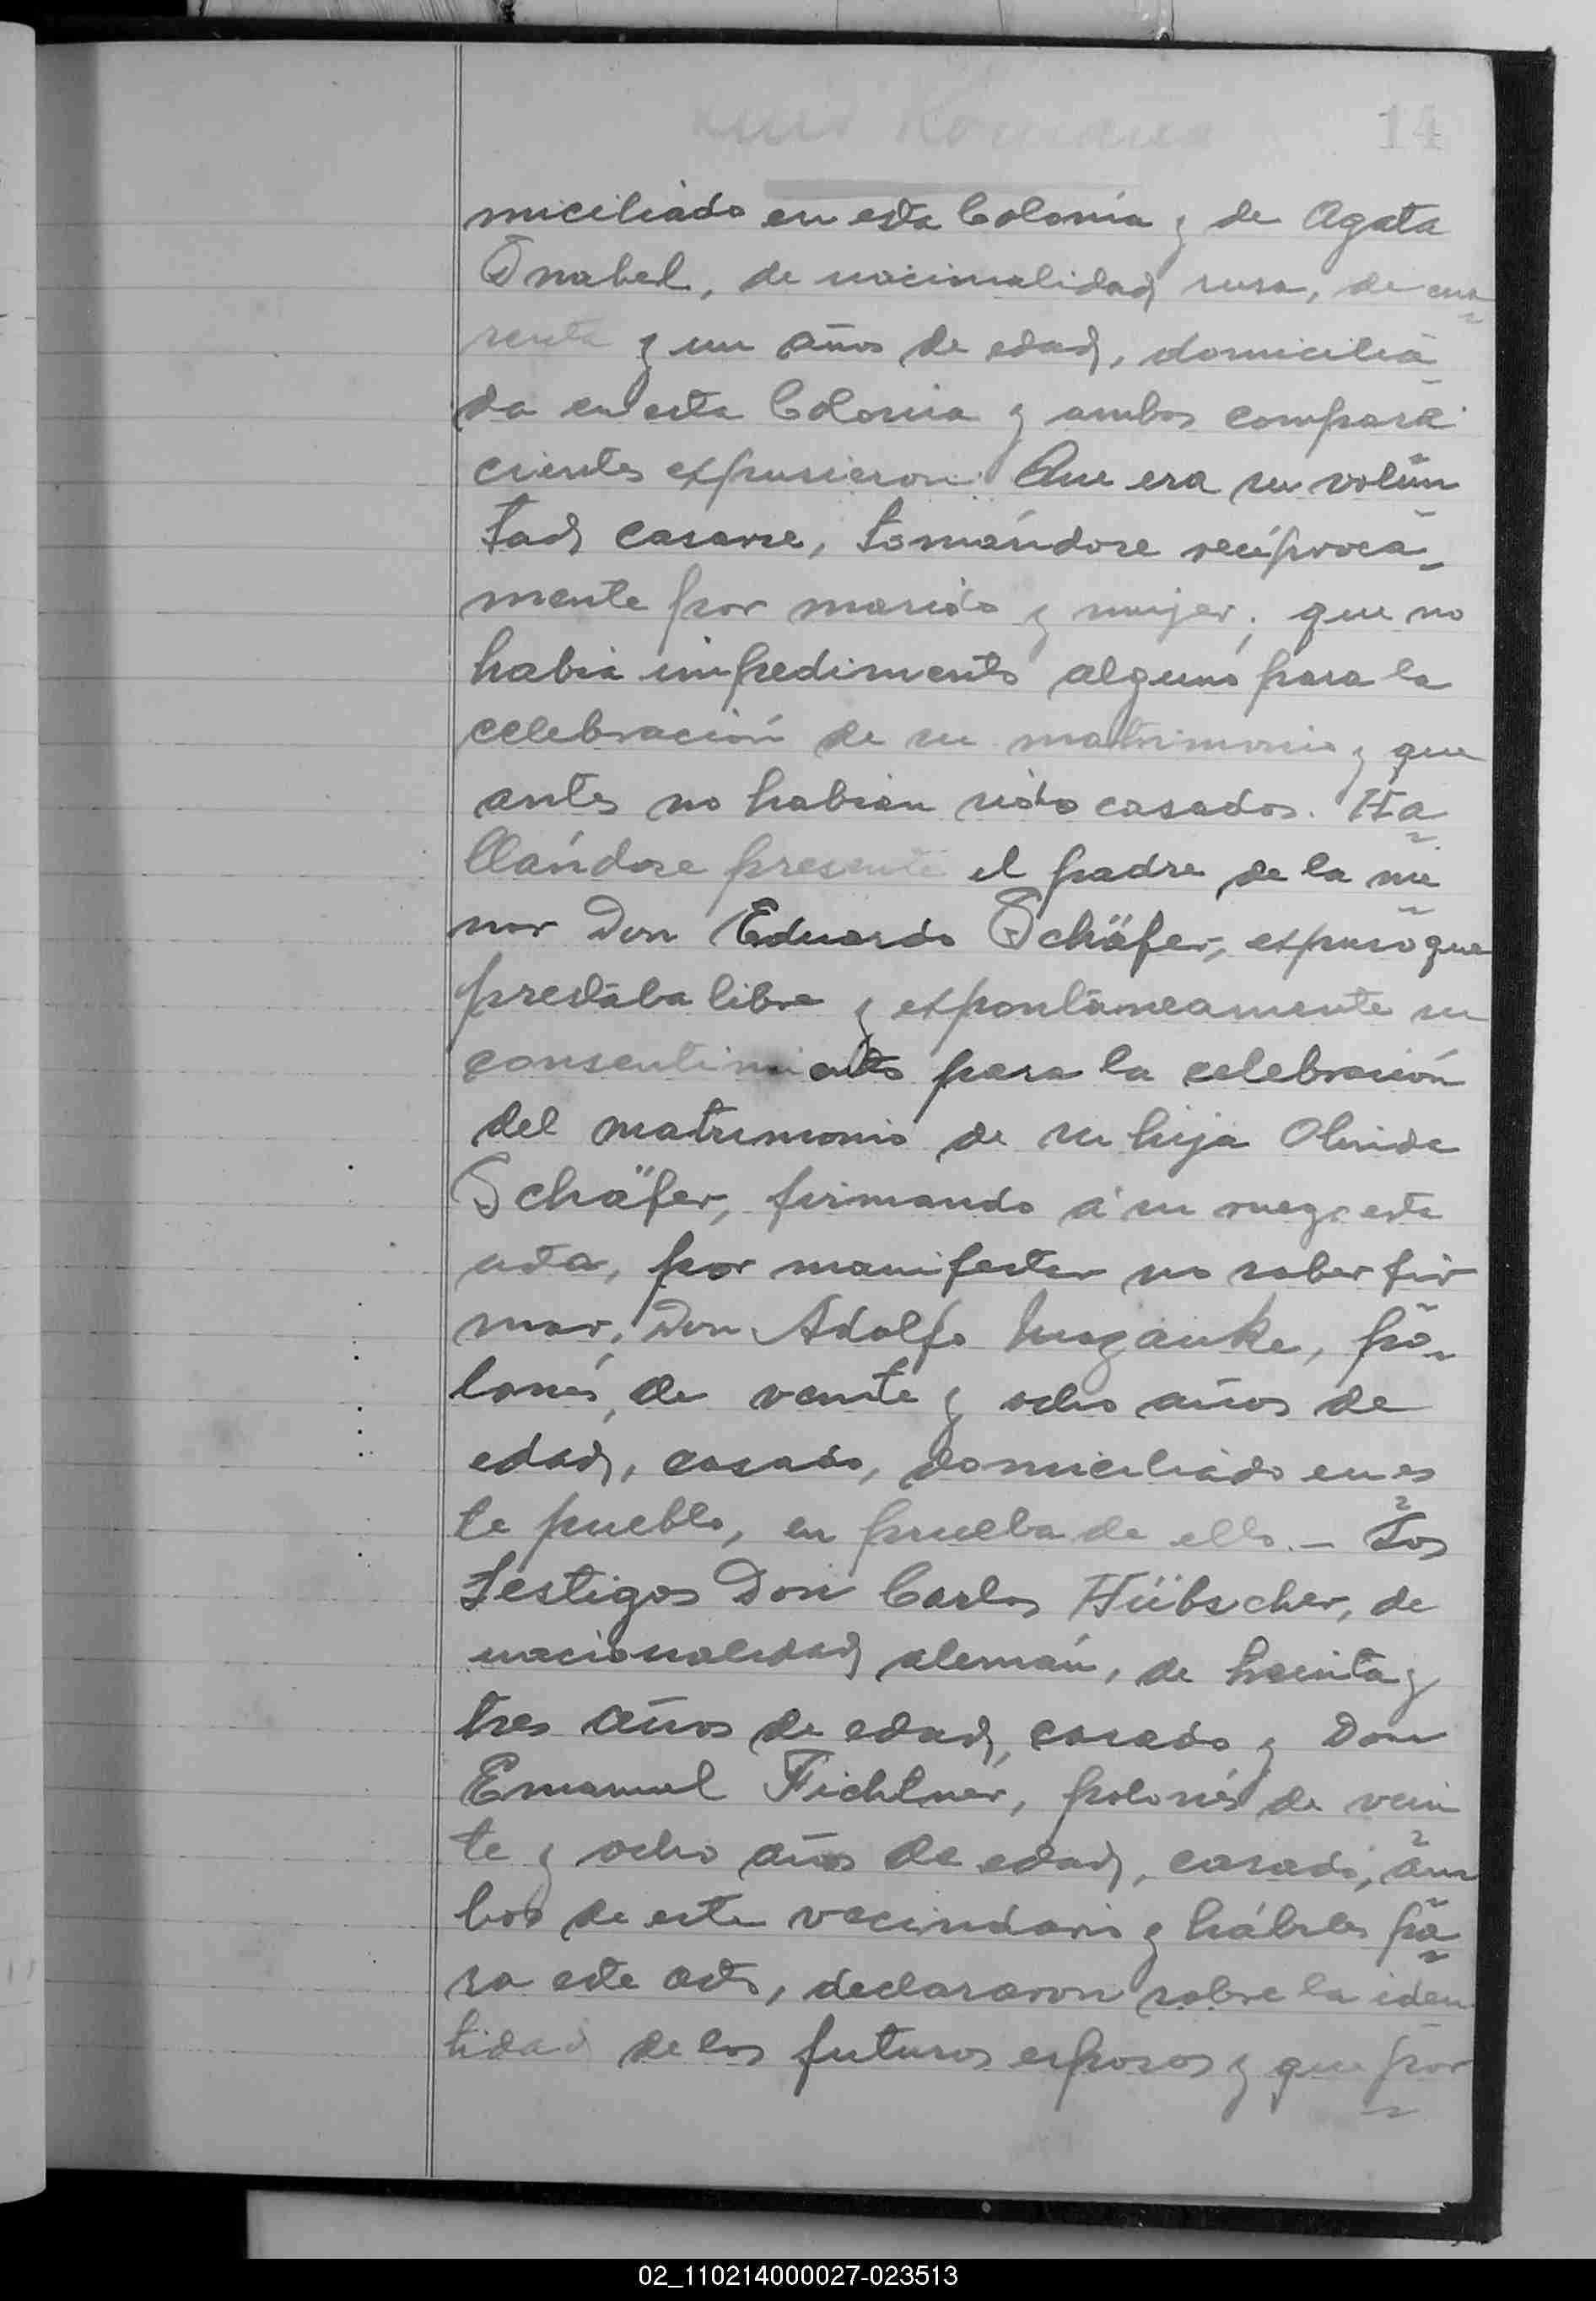 14
miciliado en esta Colonia y de Agata
Snabel, de nacionalidad rusa, de cua
renta y un años de edad, domicilia
da en esta Colonia y ambos compare
cientes expusieron: Que era su volun
tad casarse, tomándose recíproca
mente por marido y mujer; que no
habia impedimento alguno para la
celebración de su matrimonio y que
antes no habian sido casados. Ha
llándose presente el padre de la me
nor Don Eduardo Schäfer, expuso que
prestaba libre y espontáneamente su
consentimiento para la celebración
del matrimonio de su hija Olinda
Schäfer, firmando á su ruego esta
acta, por manifestar no saber fir
mar, Don Adolfo, po
lonés, de veinte y ocho años de
edad, casado, domiciliado en es
te pueblo, en prueba de ello.- Los
testigos Don Carlos Hübscher, de
nacionalidad alemán, de treinta y
tres años de edad, casado y Don
Emanuel Fichtner, polonés de vein
te y ocho años de edad, casado, am
bos de este vecindario y hábiles pa
ra este acto, declararon sobre la iden
tidad de los futuros esposos y que por
02_110214000027-023513